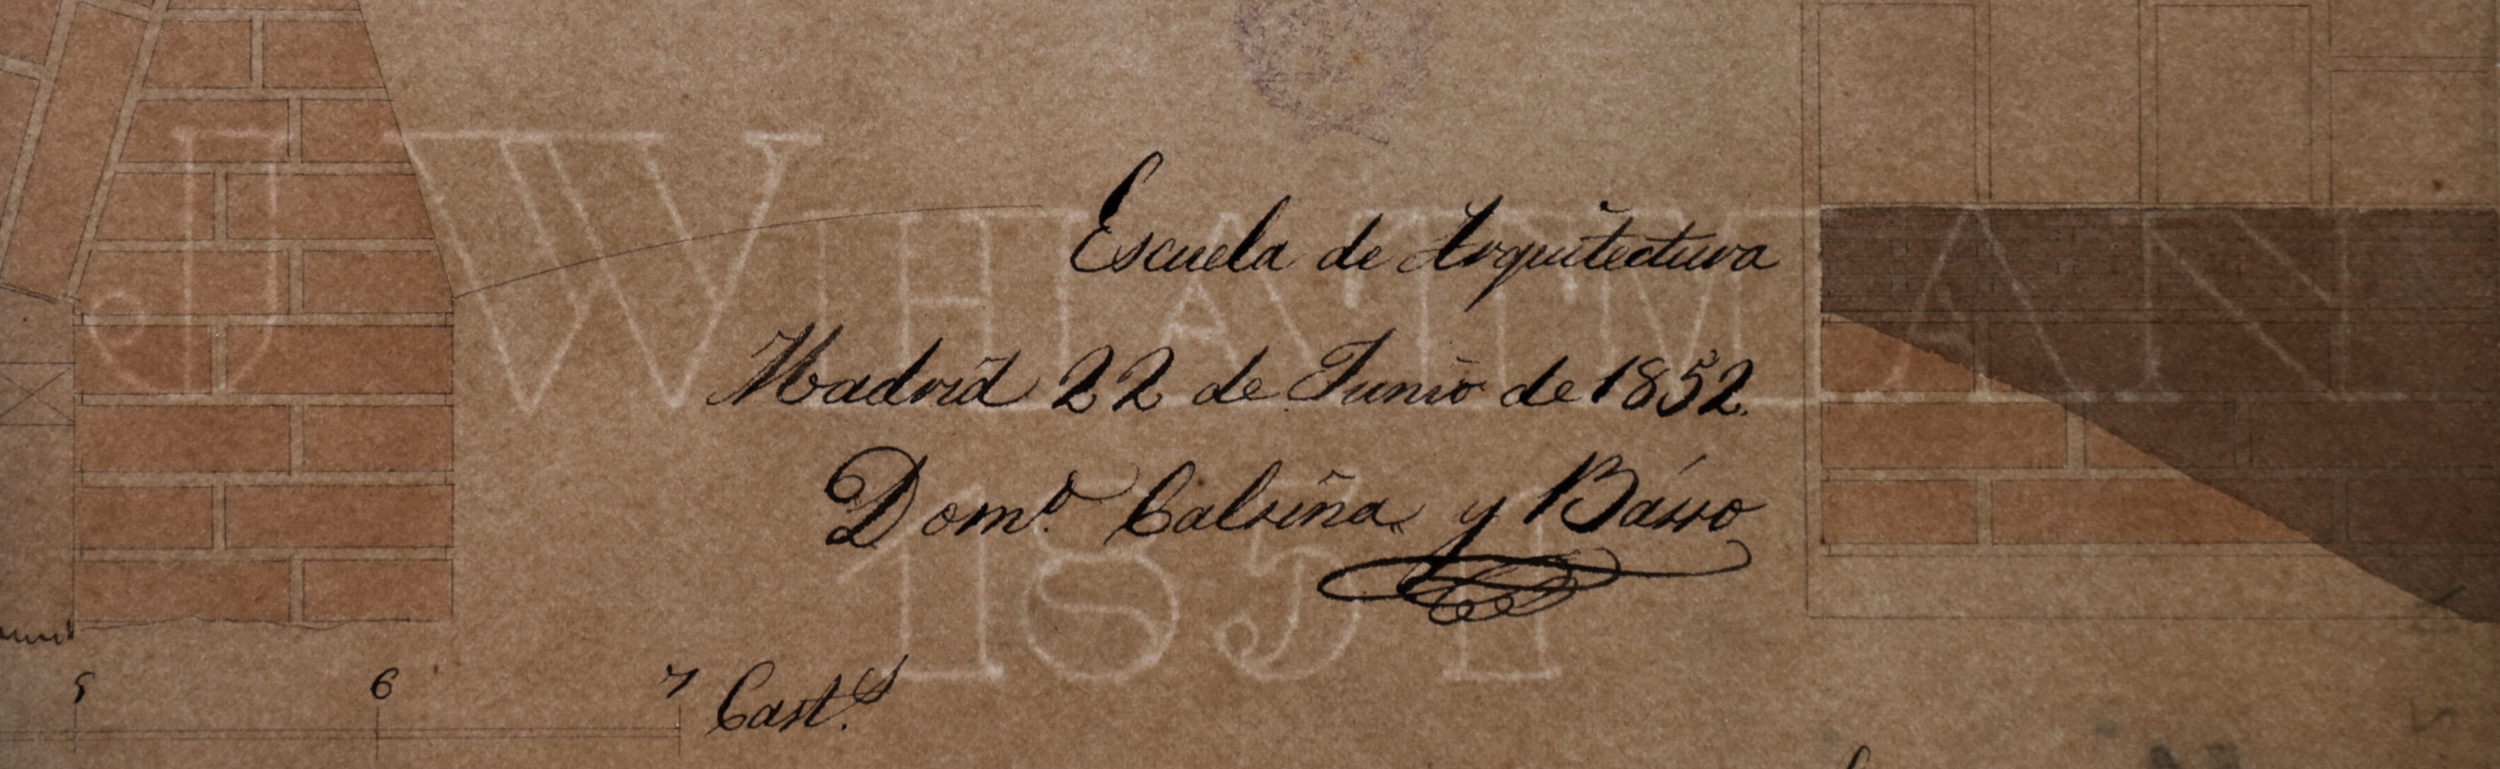 J WHATMAN
Escuela de Arquitectura
Madrid 22 de Junio de 1852.
Dom.º Calsiña y Bárro
1851
5 6 7 Cast.s